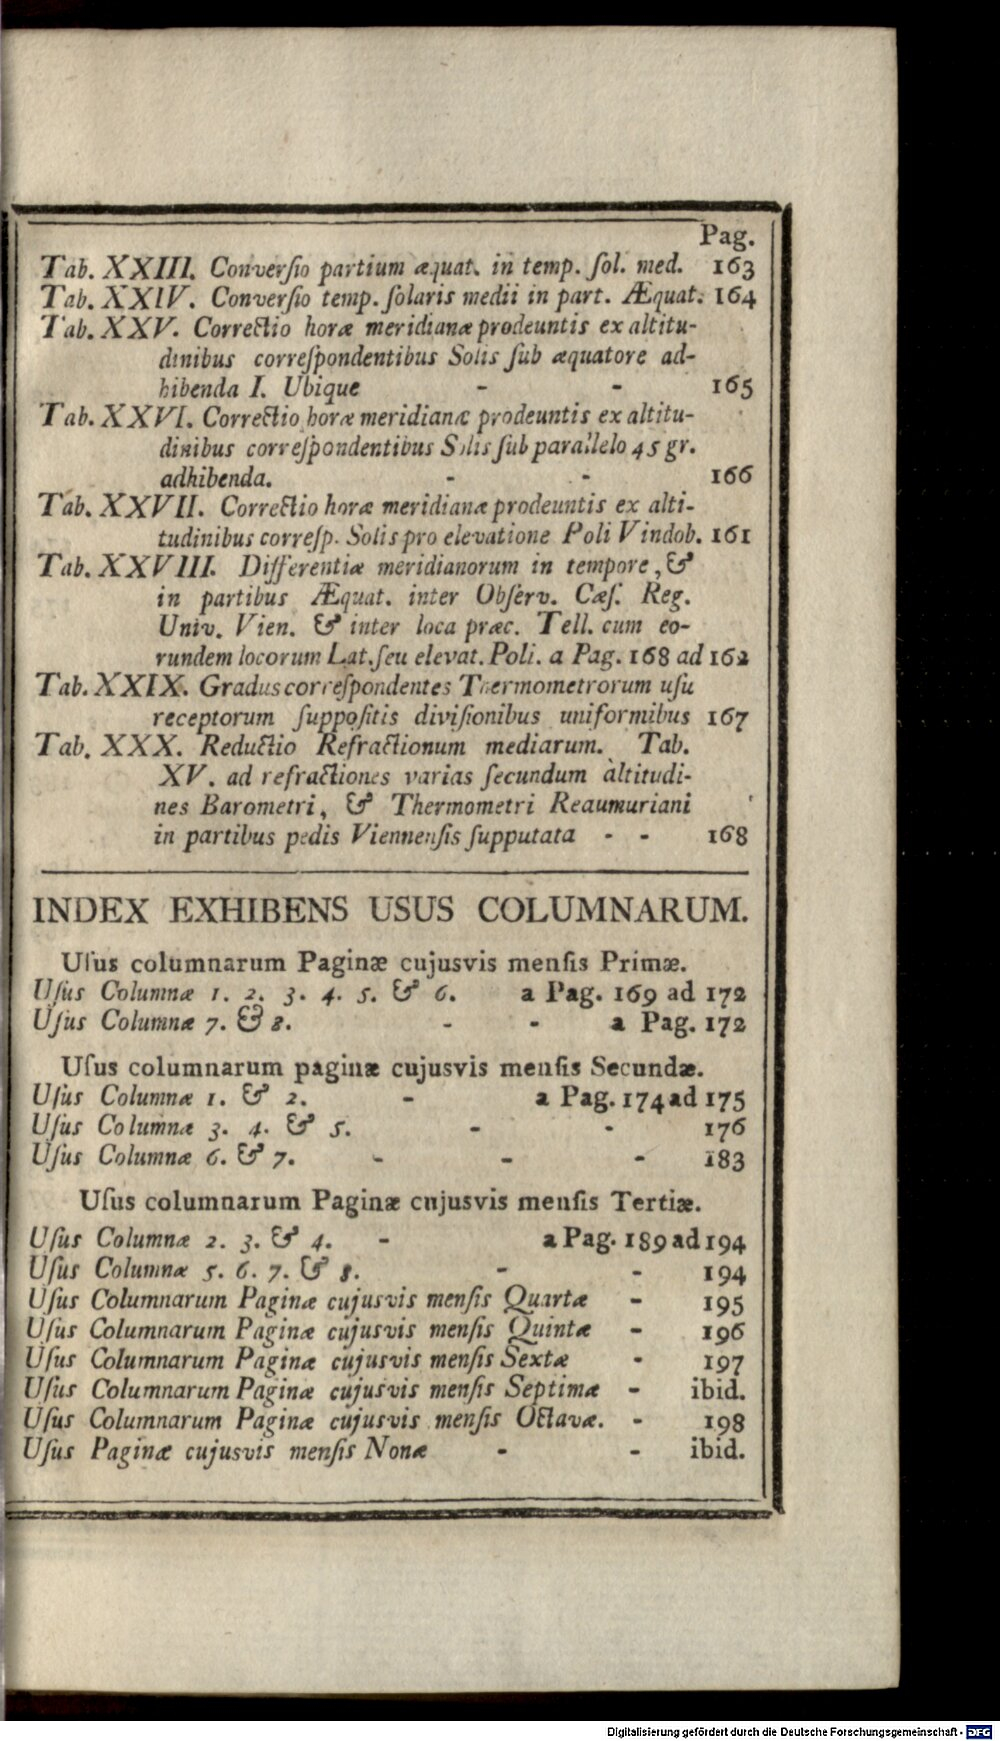 Pag.
Tab. XXIII. Converſio partium æquat. in temp. ſol. med. 163
Tab. XXIV. Converſio temp. ſolaris medii in part. Æquat. 164
Tab. XXV. Correctio horæ meridianæ prodeuntis ex altitu-
dinibus correſpondentibus Solis ſub æquatore ad-
hibenda I. Ubique - - 165
Tab. XXVI. Correctio horæ meridianæ prodeuntis ex altitu-
dinibus correſpondentibus Solis ſub parallelo 45 gr.
adhibenda. - - 166
Tab. XXVII. Correctio horæ meridianæ prodeuntis ex alti-
tudinibus correſp. Solis pro elevatione Poli Vindob. 161
Tab. XXVIII. Differentiæ meridianorum in tempore, &
in partibus Æquat. inter Obſerv. Cæſ. Reg.
Univ. Vien. & inter loca præc. Tell. cum eo-
rundem locorum Lat. ſeu elevat. Poli. a Pag. 168 ad 162
Tab. XXIX. Gradus correſpondentes Thermometrorum uſu
receptorum ſuppoſitis diviſionibus uniformibus 167
Tab. XXX. Reductio Refractionum mediarum. Tab.
XV. ad refractiones varias ſecundum altitudi-
nes Barometri, & Thermometri Reaumuriani
in partibus pedis Viennenſis ſupputata - - 168
INDEX EXHIBENS USUS COLUMNARUM.
Uſus columnarum Paginæ cujusvis menſis Primæ.
Uſus Columnæ 1. 2. 3. 4. 5. & 6. a Pag. 169 ad 172
Uſus Columnæ 7. & 8. - - a Pag. 172
Uſus columnarum paginæ cujusvis menſis Secundæ.
Uſus Columnæ 1. & 2. - a Pag. 174 ad 175
Uſus Columnæ 3. 4. & 5. - - 176
Uſus Columnæ 6. & 7. - - - 183
Uſus columnarum Paginæ cujusvis menſis Tertiæ.
Uſus Columnæ 2. 3. & 4. - a Pag. 189 ad 194
Uſus Columnæ 5. 6. 7. & 8. - - 194
Uſus Columnarum Paginæ cujusvis menſis Quartæ - 195
Uſus Columnarum Paginæ cujusvis menſis Quintæ - 196
Uſus Columnarum Paginæ cujusvis menſis Sextæ - 197
Uſus Columnarum Paginæ cujusvis menſis Septimæ - ibid.
Uſus Columnarum Paginæ cujusvis menſis Octavæ. - 198
Uſus Paginæ cujusvis menſis Nonæ - - ibid.
Digitalisierung gefördert durch die Deutsche Forschungsgemeinschaft - DFG